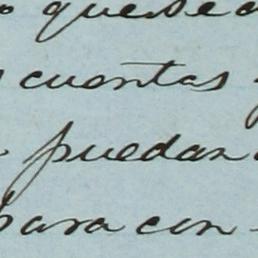 que se
cuentas
puedan
para con